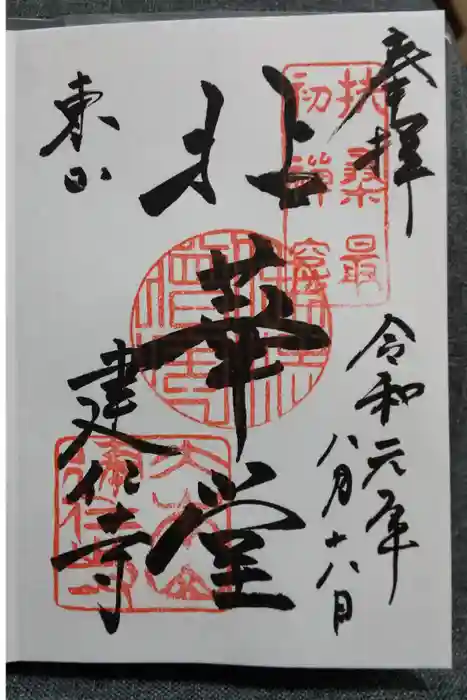 奉拝
令和元年
八月十八日
扶桑最
初禅窟
拈華堂
東山
建仁寺